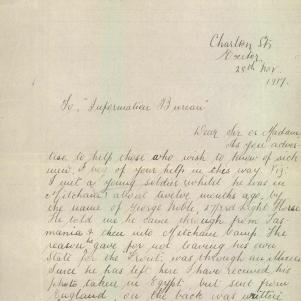 Charlton St.
Exeter
28th Nov.
1917.
To, "Information Bureau"
Dear Sir or Madam
As you adver-
tise to help those who wish to know of sick
men, I beg of your help in this way. Viz:
I met a young soldier whilst he was in
Mitcham about twelve months ago, by
the name of George Noble, 3rd Light Horse.
He told me he came through from Tas-
mania & then into Mitcham Camp. The
reason he gave for not leaving his own
State for the Front, was through an illness
Since he has left here I have received his
photo, taken in Egypt but sent from
England on the back was written